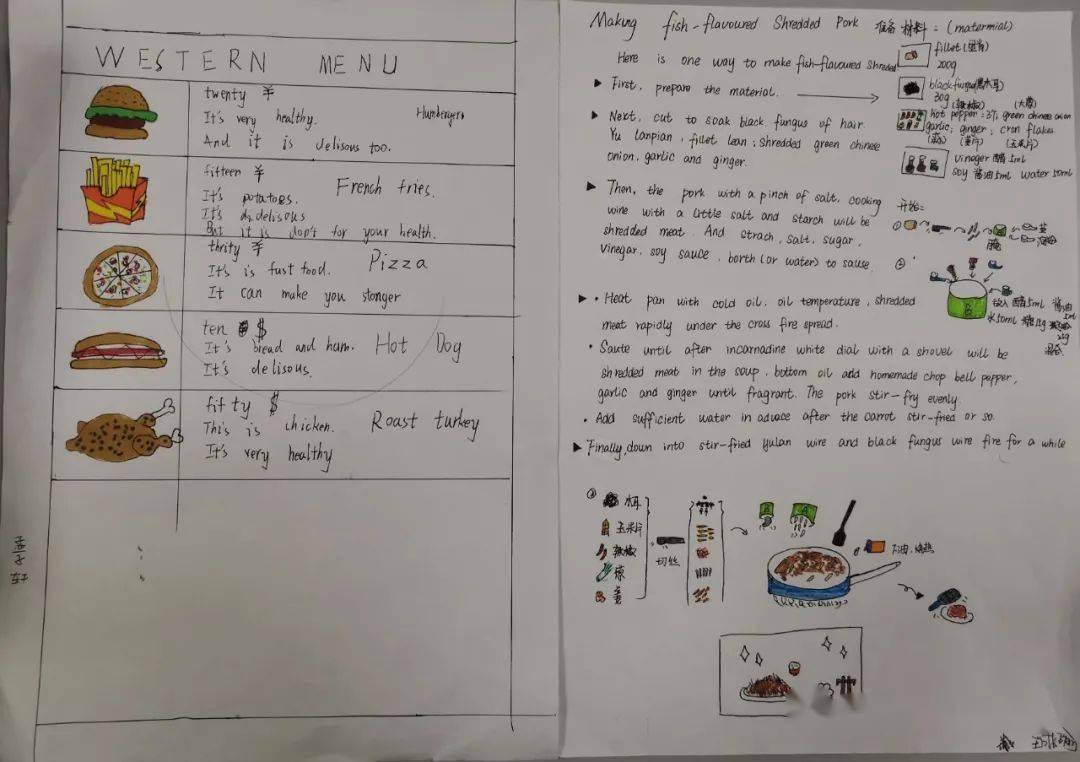 WESTERN MENU
twenty ￥
It's very healthy. Humbergers
And it is delisous too.
fifteen ￥
French fries.
It's potatoes.
It's delisous
But it is dop't for your health.
thrity ￥
Pizza
It's is fust food.
It can make you stonger
ten $
It's bread and ham. Hot Dog
It's delisous.
fifty $
This is chicken. Roast turkey
It's very healthy
Making fish-flavoured Shredded Pork 准备材料：(matermial)
Here is one way to make fish-flavoured shredded
▶ First, prepare the material.
▶ Next, cut to soak black fungus of hair
Yu lanpian, fillet lean; shredded green chinese
onion, garlic and ginger.
▶ Then, the pork with a pinch of salt, cooking
wine with a little salt and starch will be
shredded meat. And strach, salt, sugar,
vinegar, soy sauce, borth (or water) to sause.
▶ • Heat pan with cold oil, oil temperature, shredded
meat rapidly under the cross fire spread.
• Saute until after incarnadine white dial with a shovel will be
shredded meat in the soup, bottom oil add homemade chop bell pepper,
garlic and ginger until fragrant. The pork stir-fry evenly.
• Add sufficient water in advace after the carrot stir-fried or so.
▶ Finally, down into stir-fried yulan wire and black fungus wire fire for a while
fillet
200g
black fungus (黑木耳)
30g (辣椒) (大葱)
hot pepper: 3个 green chinese onion
garlic, ginger; cron flakes
(姜片) (玉米片)
vinager 醋 5ml
soy 酱油 5ml water 50ml
开始:
①
②
B
放入醋5ml 酱油
5ml
水50ml
③
木耳
玉米片
辣椒
葱
姜
切丝
B A
下油,烧热